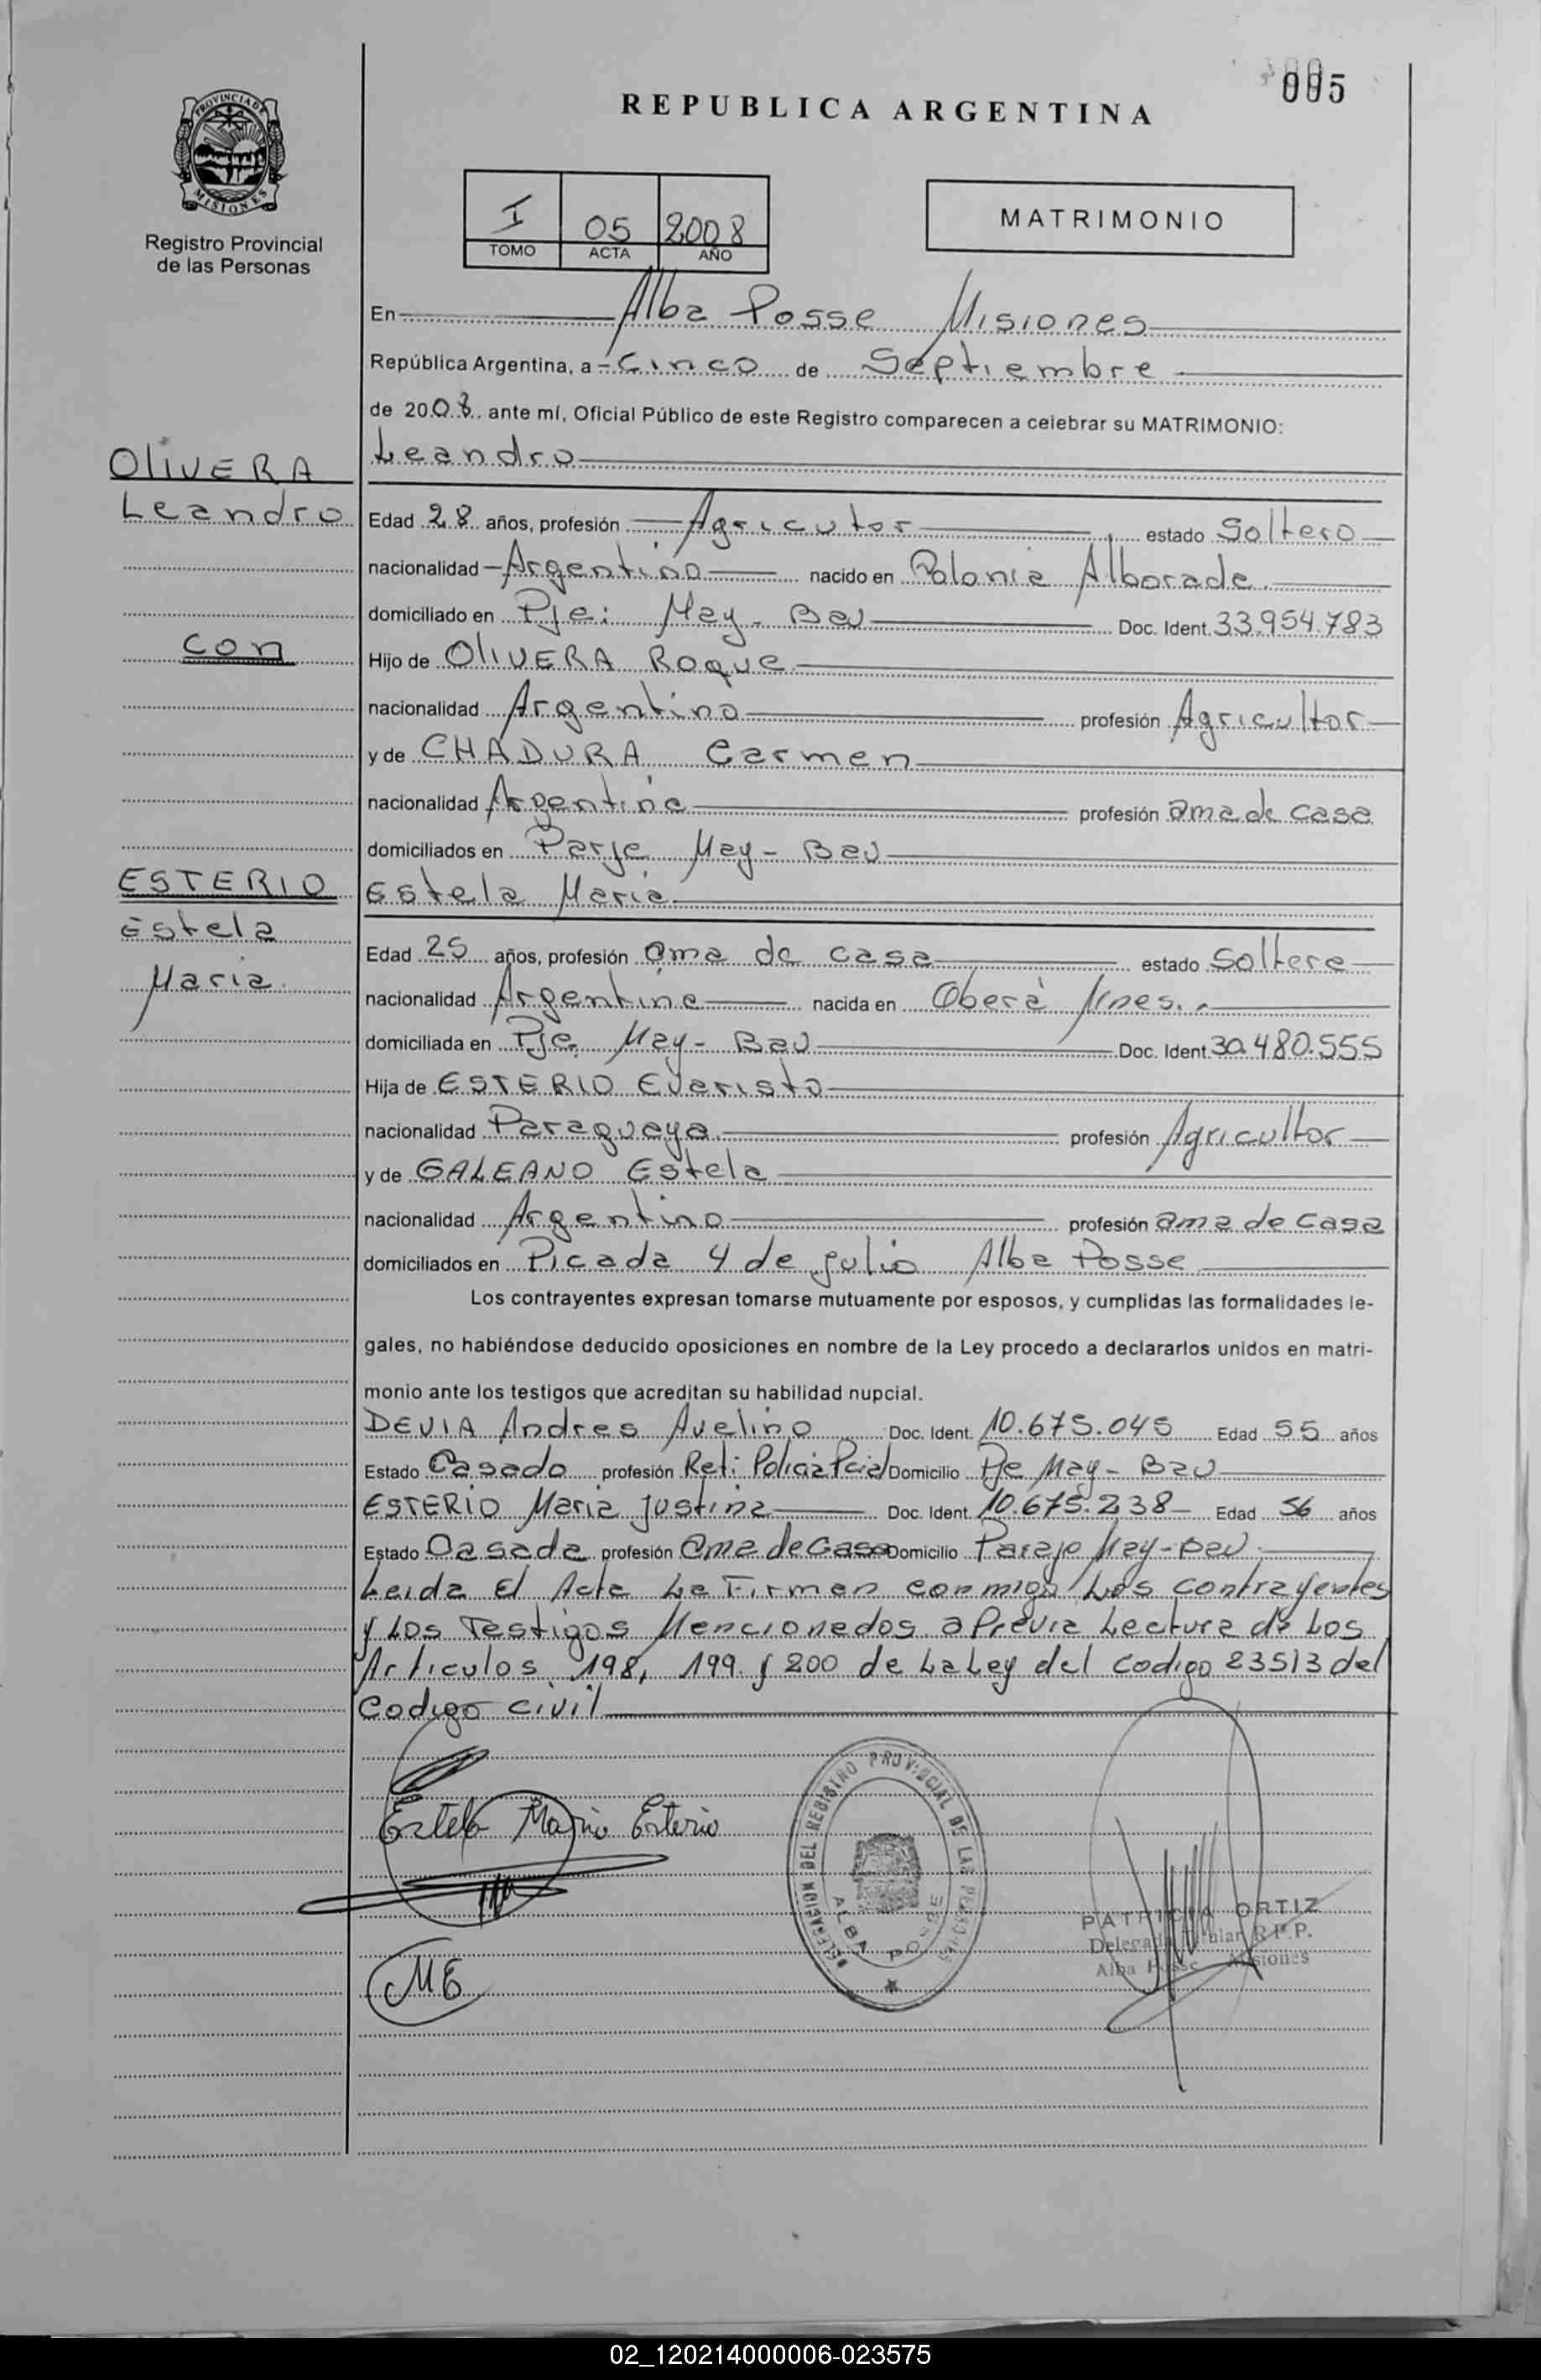 005
REPUBLICA ARGENTINA
PROVINCIA DE MISIONES
Registro Provincial
de las Personas
I 05 2008
TOMO ACTA AÑO
MATRIMONIO
En Alba Posse Misiones
República Argentina, a Cinco de Septiembre
de 2008 ante mí, Oficial Público de este Registro comparecen a celebrar su MATRIMONIO:
OLIVERA
Leandro
Leandro
Edad 28 años, profesión Agricutor estado Soltero
nacionalidad Argentino nacido en Colonia Alborade
domiciliado en Pje: May-Bau Doc. Ident. 33.954.783
con
Hijo de OLIVERA Roque
nacionalidad Argentino profesión Agricultor
y de CHADURA Carmen
nacionalidad Argentina profesión ama de casa
domiciliados en Parje May-Bau
ESTERIO
Estela
Maria
Estela Maria
Edad 25 años, profesión ama de casa estado Soltera
nacionalidad Argentina nacida en Oberá Mnes.
domiciliada en Pje May-Bau Doc. Ident. 30.480.555
Hija de ESTERIO Evaristo
nacionalidad Paraguaya profesión Agricultor
y de GALEANO Estela
nacionalidad Argentino profesión ama de casa
domiciliados en Picada 4 de julio Alba Posse
Los contrayentes expresan tomarse mutuamente por esposos, y cumplidas las formalidades le-
gales, no habiéndose deducido oposiciones en nombre de la Ley procedo a declararlos unidos en matri-
monio ante los testigos que acreditan su habilidad nupcial.
DEVIA Andres Avelino Doc. Ident. 10.675.045 Edad 55 años
Estado Casado profesión Reti: Policia Pcial Domicilio Pje May-Bau
ESTERIO Maria Justina Doc. Ident. 10.675.238 Edad 56 años
Estado Casada profesión Ama de Casa Domicilio Paraje May-Bau
Leida El Acta La Firman conmigo Los contrayentes
y Los Testigos Mencionados a Previa Lectura de Los
Articulos 198, 199 y 200 de La Ley del codigo 23513 del
Codigo civil
Estela Maria Esterio
ME
DELEGACION DEL REGISTRO PROVINCIAL DE LAS PERSONAS
ALBA POSSE
PATRICIA ORTIZ
Delegada Titular R.P.P.
Alba Posse Misiones
02_120214000006-023575